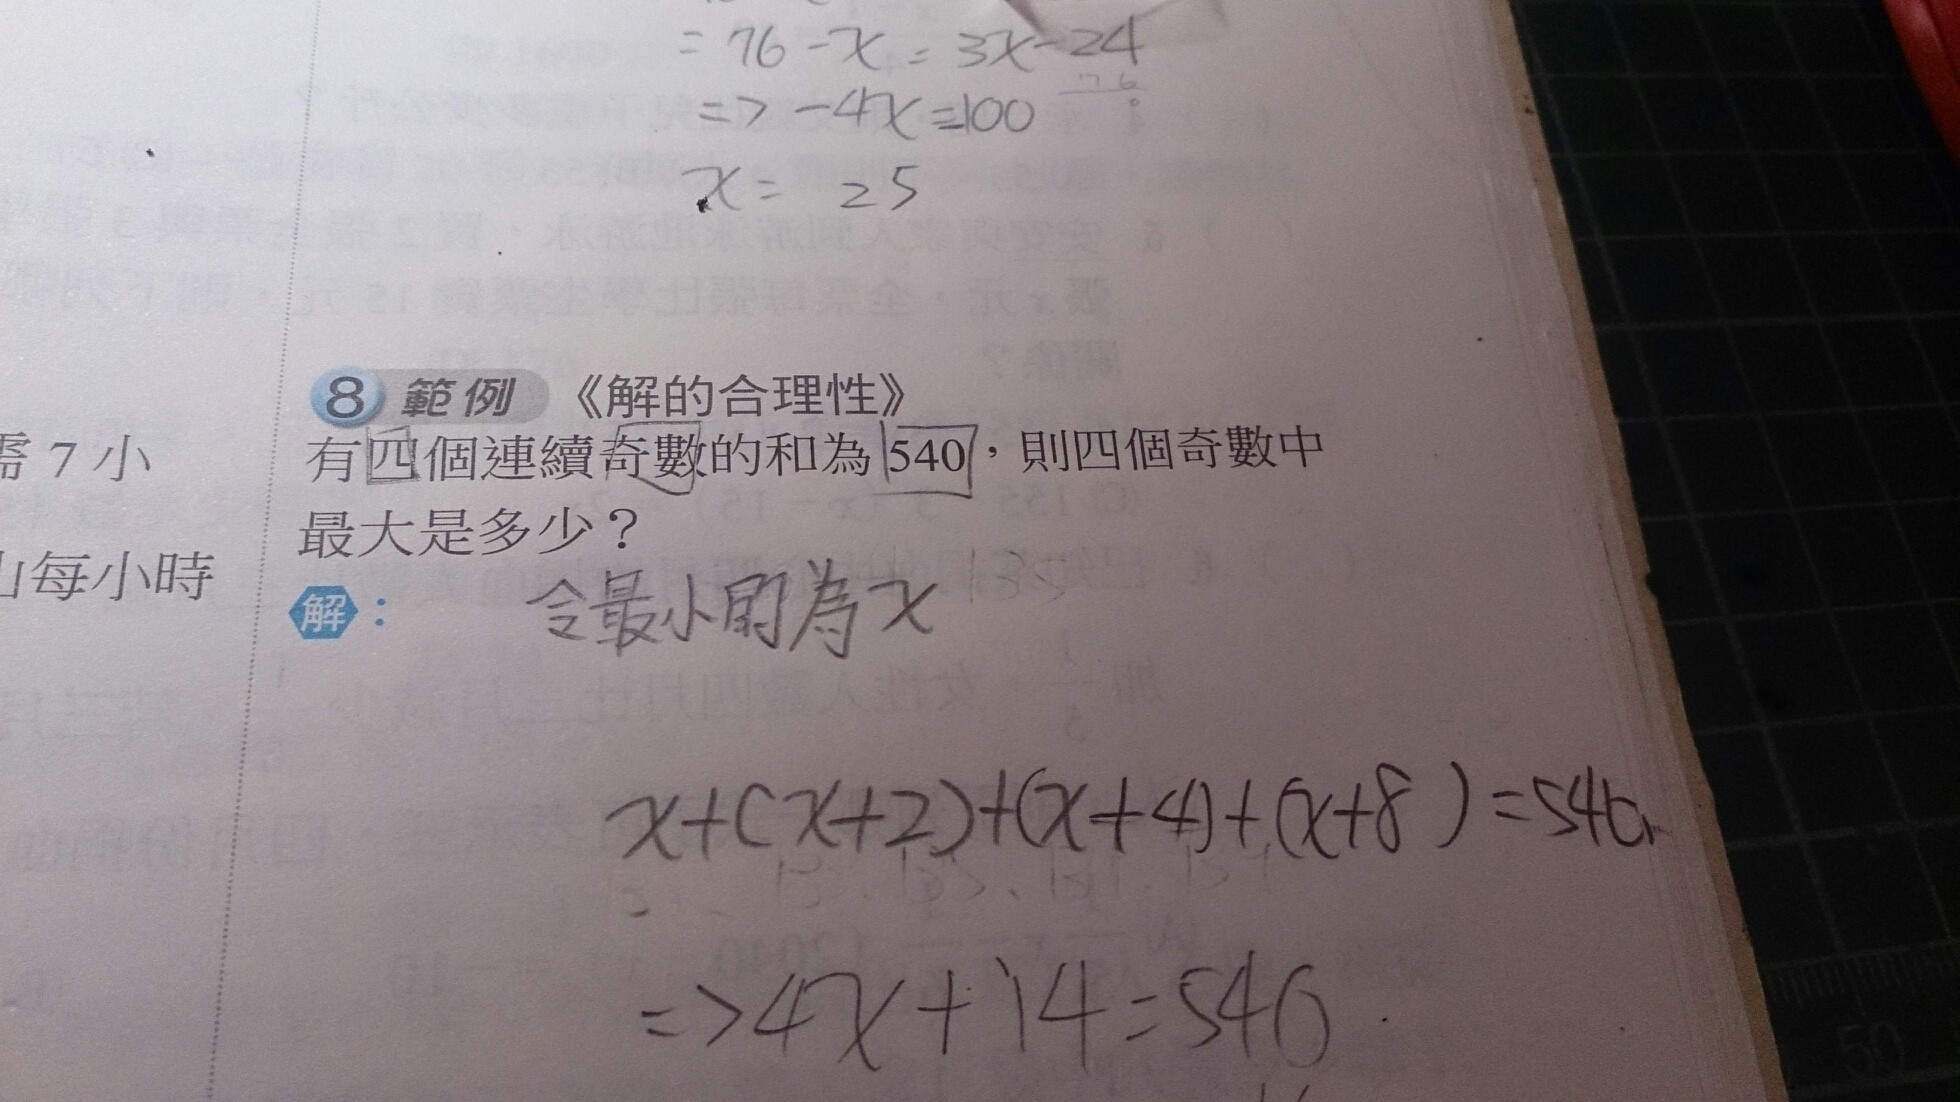 = 76 - x = 3x - 24
176
=> -4x = 100
x = 25
8 範例 《解的合理性》
有四個連續奇數的和為540，則四個奇數中
最大是多少？
解： 令最小的為x
x+(x+2)+(x+4)+(x+8)=540
=>4x+14=540
需 7 小
山每小時
50